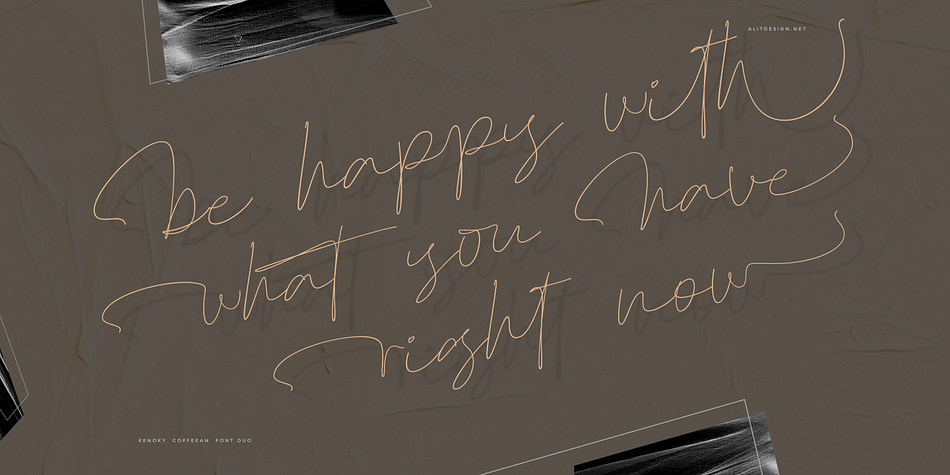 ALITDESIGN.NET
be happy with
what you have
right now
KENOKY COFFERAN FONT DUO